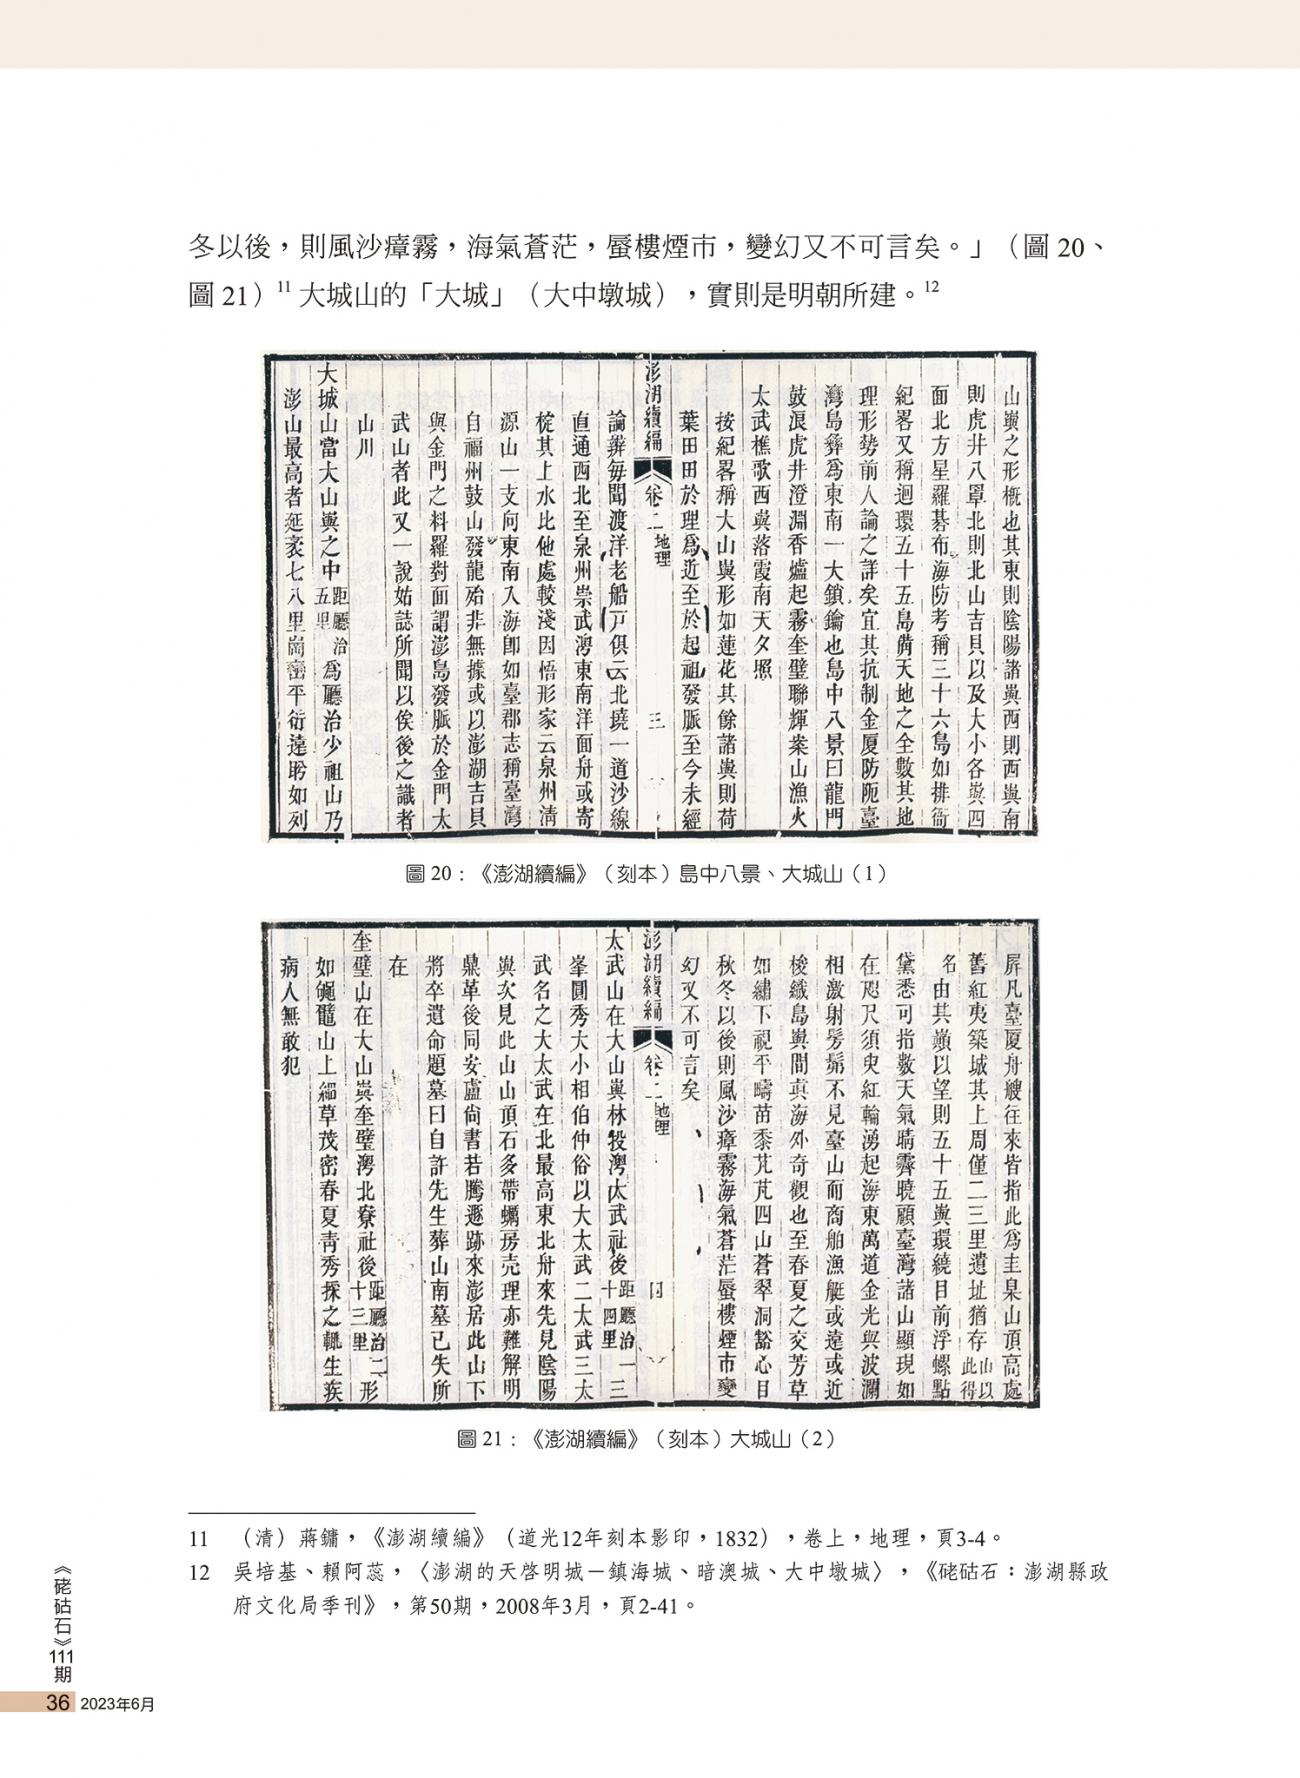 冬以後，則風沙瘴霧，海氣蒼茫，蜃樓煙市，變幻又不可言矣。」（圖 20、
圖 21）11 大城山的「大城」（大中墩城），實則是明朝所建。12
山嶼之形概也其東則陰陽諸嶼西則西嶼南
則虎井八罩北則北山吉貝以及大小各嶼四
面北方星羅碁布海防考稱三十六島如排衙
紀畧又稱迴環五十五島備天地之全數其地
理形勢前人論之詳矣宜其抗制金厦防阨臺
灣島彝為東南一大鎖鑰也島中八景曰龍門
鼓浪虎井澄淵香爐起霧奎璧聯輝案山漁火
太武樵歌西嶼落霞南天夕照
按紀畧稱大山嶼形如蓮花其餘諸嶼則荷
葉田田於理為近至於起祖發脈至今未經
澎湖續編 卷二 地理 三
論辨每聞渡洋老船戶俱云北磽一道沙線
直通西北至泉州崇武灣東南洋面舟或寄
椗其上水比他處較淺因悟形家云泉州清
源山一支向東南入海卽如臺郡志稱臺灣
自福州鼓山發龍殆非無據或以澎湖吉貝
與金門之料羅對面謂澎島發脈於金門太
武山者此又一說姑誌所聞以俟後之識者
山川
大城山當大山嶼之中距廳治五里為廳治少祖山乃
澎山最高者延袤七八里崗巒平衍遠昤如列
圖 20：《澎湖續編》（刻本）島中八景、大城山（1）
屏凡臺厦舟艘往來皆指此為圭臬山頂高處
舊紅夷築城其上周僅二三里遺址猶存山以此得
名由其巔以望則五十五嶼環繞目前浮螺點
黛悉可指數天氣晴霽曉顧臺灣諸山顯現如
在咫尺須臾紅輪湧起海東萬道金光與波瀾
相激射髣髴不見臺山而商舶漁艇或遠或近
梭織島嶼間真海外奇觀也至春夏之交芳草
如繡下視平疇苗黍芃芃四山蒼翠洞豁心目
秋冬以後則風沙瘴霧海氣蒼茫蜃樓煙市變
幻又不可言矣
澎湖續編 卷二 地理 四
太武山在大山嶼林投灣太武社後距廳治一十四里三
峯圓秀大小相伯仲俗以大太武二太武三太
武名之大太武在北最高東北舟來先見陰陽
嶼次見此山山頂石多帶蠣房売理亦難解明
鼎革後同安盧尚書若騰遯跡來澎居此山下
將卒遺命題墓曰自許先生葬山南墓已失所
在
奎璧山在大山嶼奎璧灣北寮社後距廳治二十三里形
如龜鼇山上細草茂密春夏青秀採之輒生疾
病人無敢犯
圖 21：《澎湖續編》（刻本）大城山（2）
11 （清）蔣鏞，《澎湖續編》（道光12年刻本影印，1832），卷上，地理，頁3-4。
12 吳培基、賴阿蕊，〈澎湖的天啓明城－鎮海城、暗澳城、大中墩城〉，《硓𥑮石：澎湖縣政
府文化局季刊》，第50期，2008年3月，頁2-41。
《硓𥑮石》111期
36 2023年6月